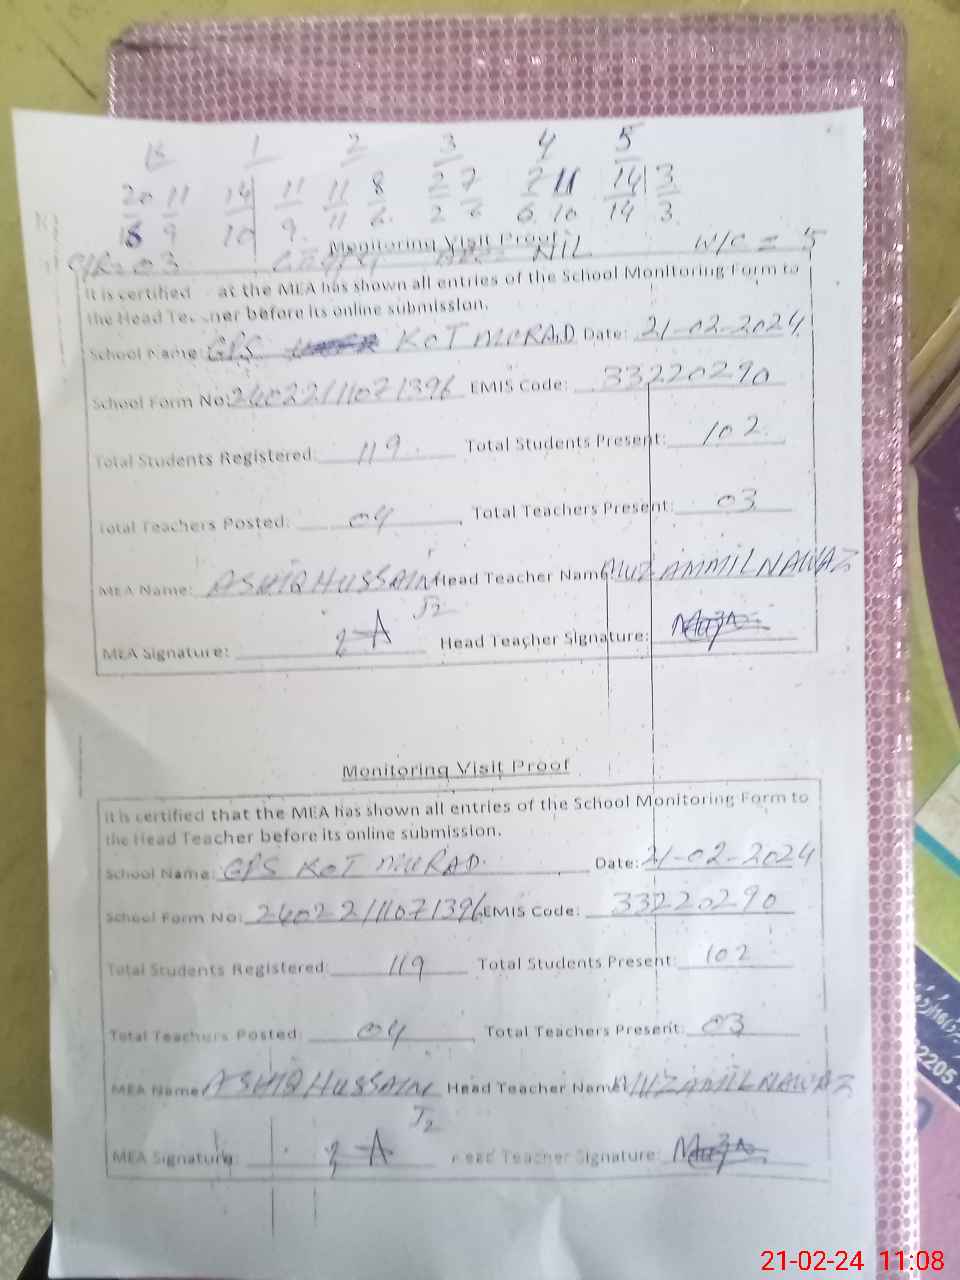 K 1 2 3 4 5
20 11 14 11 11 8 2 7 7 11 14 3
18 9 10 9 11 6 2 6 6 10 14 3
Monitoring Visit Proof NIL W/C = 5
It is certified at the MEA has shown all entries of the School Monitoring Form to
the Head Teacher before its online submission.
School Name: GPS KOT MURAD Date: 21-02-2024
School Form No: 24022111071396 EMIS Code: 33220290
Total Students Registered: 119 Total Students Present: 102
Total Teachers Posted: 04 Total Teachers Present: 03
MEA Name: ASHIQ HUSSAIN Head Teacher Name MUZAMMIL NAWAZ
MEA Signature: Head Teacher Signature:
Monitoring Visit Proof
It is certified that the MEA has shown all entries of the School Monitoring Form to
the Head Teacher before its online submission.
School Name: GPS KOT MURAD. Date: 21-02-2024
School Form No: 24022111071396 EMIS Code: 33220290
Total Students Registered: 119 Total Students Present: 102
Total Teachers Posted: 04 Total Teachers Present: 03
MEA Name ASHIQ HUSSAIN Head Teacher Name MUZAMMIL NAWAZ
MEA Signature: Head Teacher Signature:
2205
21-02-24 11:08